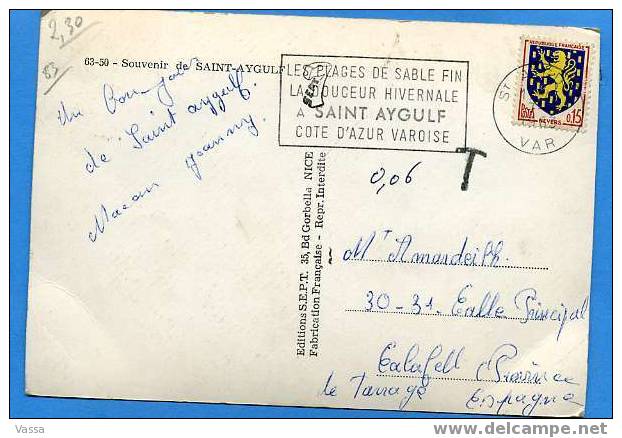 2,30
83
63-50 - Souvenir de SAINT-AYGULF
LES PLAGES DE SABLE FIN
LA DOUCEUR HIVERNALE
A SAINT AYGULF
COTE D'AZUR VAROISE
REPUBLIQUE FRANCAISE
0,15
NEVERS
ST
VAR
T
0,06
un bon jour
de Saint aygulf
Jeanny
Editions S.E.P.T. 35, Bd Gorbella NICE
Fabrication Française - Repr. Interdite
30-31 Calle Principal
Calafell Province
de Tarrage Espagne
Vassa
delcampe.net